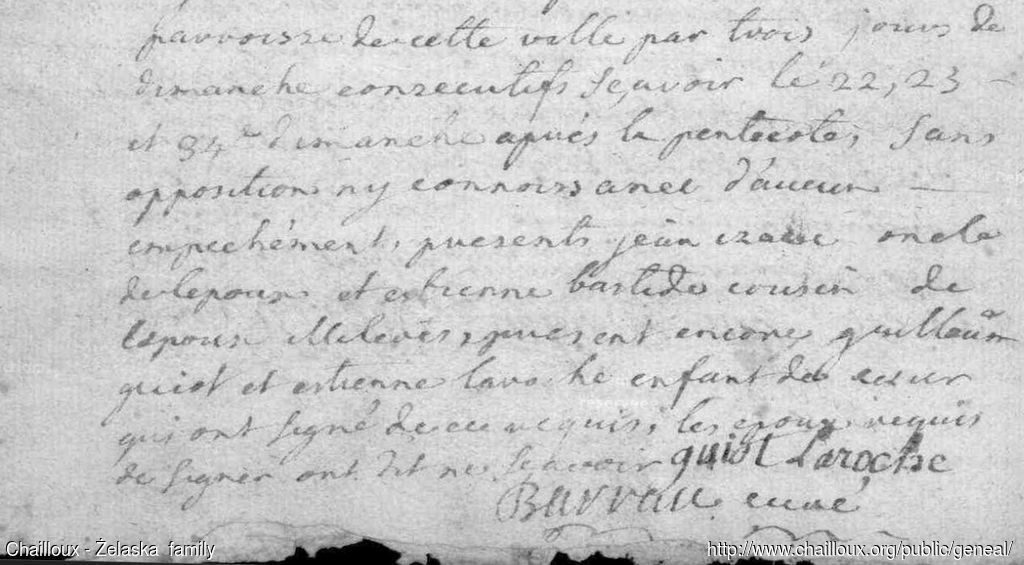 parroisse de cette ville par trois jours de
dimanche consecutifs sçavoir le 22, 23
et 24e dimanche aprés la pentecote, sans
opposition ny connoissance d'aucun
empechément, presents jean oncle
de lepoux et estienne bastide cousin de
lepoux illiterés, present encore guillaum
guiot et estienne laroche enfant de cœur
qui ont signé de ce requis, les epoux requis
de signer ont dit ne sçavoir guiot Laroche
Barrau curé
Chailloux - Żelaska family
http://www.chailloux.org/public/geneal/